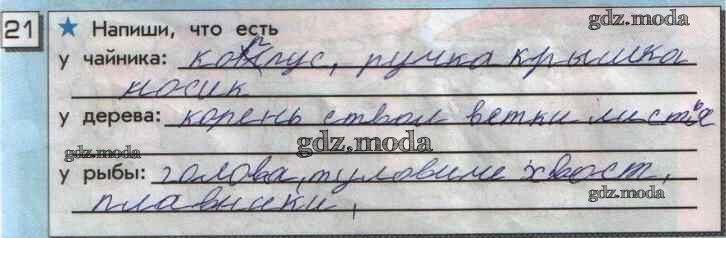 21 ★ Напиши, что есть
gdz.moda
у чайника: корпус, ручка крышка
носик
у дерева: корень ствол ветки листья
gdz.moda
gdz.moda
у рыбы: голова, туловище хвост,
gdz.moda
плавники,